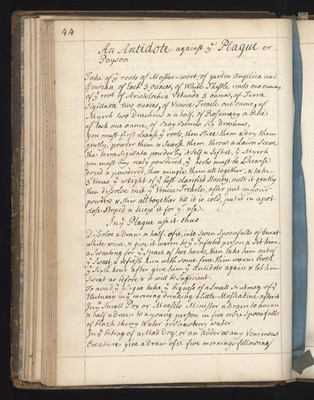 44
An Antidote against yͤ Plague or
Poyson
Take of yͤ roots of Master-wort, of garden Angelica and
Gentian of each 3 ounces, of White Thistle roots one ounce
of yͤ root of Aristolochia Rotunda 3 ounces, of Terra
Sigillata two ounces, of Venice Treacle one ounce, of
Myrrh two Drachms & a half, of Rosemary &
of each one ounce, of Bay Berries six Drachms,
You must first cleanse yͤ roots, then slice them & dry them
gently, powder them & searse them through a Lawn sieve
the terra Sigillata powder by it self & sift it, yͤ Myrrh
you must buy ready powdered, yͤ herbs must be cleansed
Dryed & powdered, then mingle them all together, & take
3 times yͤ weight of yͤ best clarified Honey, melt it gently
then dissolve in it yͤ Venice Treacle, after put in your
powders & stir all together till it is cold, put it in a pot
close stoped & keep it for yͬ use.
In yͤ Plague use it thus
Dissolve a dram & half of it, into seven spoonfulls of burnt
White wine, & give it warm to yͤ infected person & let him
a sweating for yͤ space of two houres, then take him out of
yͤ sweat, & refresh him with some fine thin warm broth
yͤ sixth hour after give him yͤ Antidote again & let him
sweat as before & it will be sufficient.
To avoid yͤ plague take yͤ bigness of a small Nutmeg of yͤ
Electuary in yͤ morning drinking a little Muskadine after it
In yͤ Small Pox or Measles, Minister a dram to a man
& half a dram to a young person in five or six spoonfulls
of black cherry water or strawberry water
In yͤ biting of a Mad Dog, or an Adder or any Venimous
Creature give a dram of it five mornings following